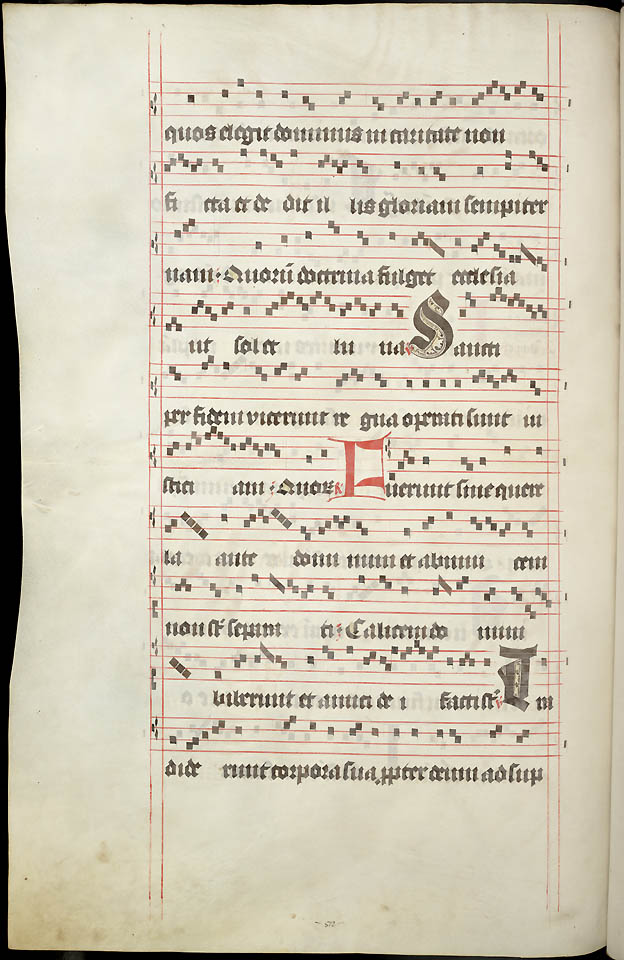 quos elegit dominus in caritate non
fi cta et de dit il lis gloriam sempiter
nam Quorū doctrina fulget ecclesia
ut sol et lu na Sancti
per fidem vicerunt re gna operati sunt iu
stici am Quorꝝ Fuerunt sine quere
la ante domi num et ab inui cem
non sꝫ sepera ti Calicem do mini
biberunt et amici de i facti sꝫ Tra
dide runt corpora sua ꝓpter deum ad sup